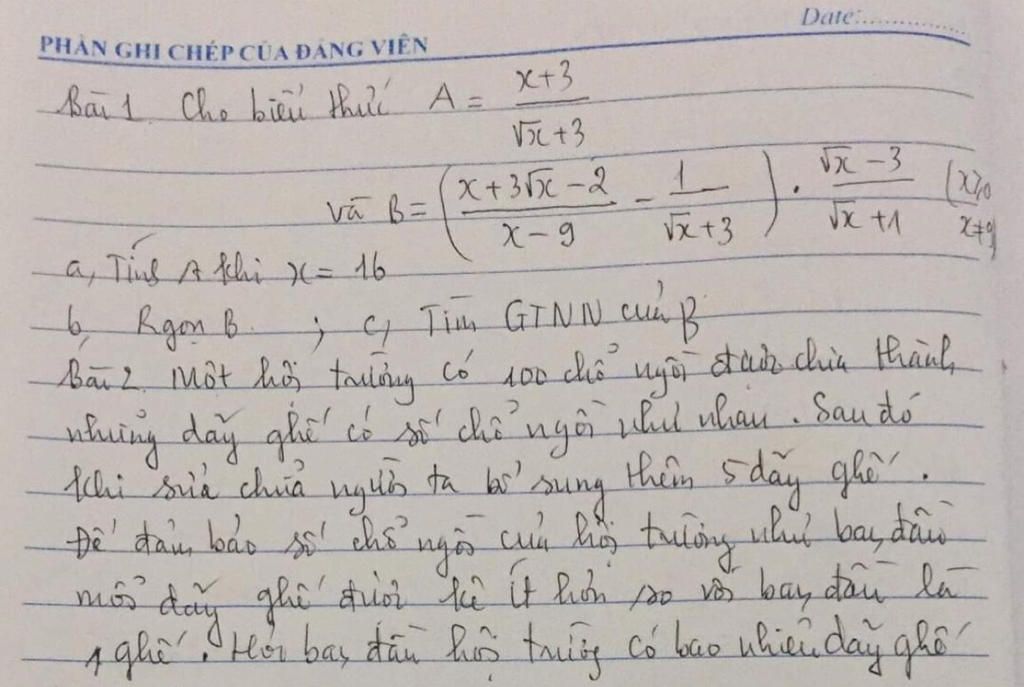 Date:..............
PHẦN GHI CHÉP CỦA ĐẢNG VIÊN
Bài 1. Cho biểu thức A = (x+3)/(√x+3)
và B = ((x+3√x-2)/(x-9) - 1/(√x+3)) . (√x-3)/(√x+1) (x≥0 x≠9)
a, Tính A khi x = 16
b, Rgọn B. ; c, Tìm GTNN của B
Bài 2. Một hội trường có 100 chỗ ngồi được chia thành
những dãy ghế có số chỗ ngồi như nhau. Sau đó
khi sửa chữa người ta bổ sung thêm 5 dãy ghế.
Để đảm bảo số chỗ ngồi của hội trường như ban đầu
mỗi dãy ghế được kê ít hơn so với ban đầu là
1 ghế. Hỏi ban đầu hội trường có bao nhiêu dãy ghế